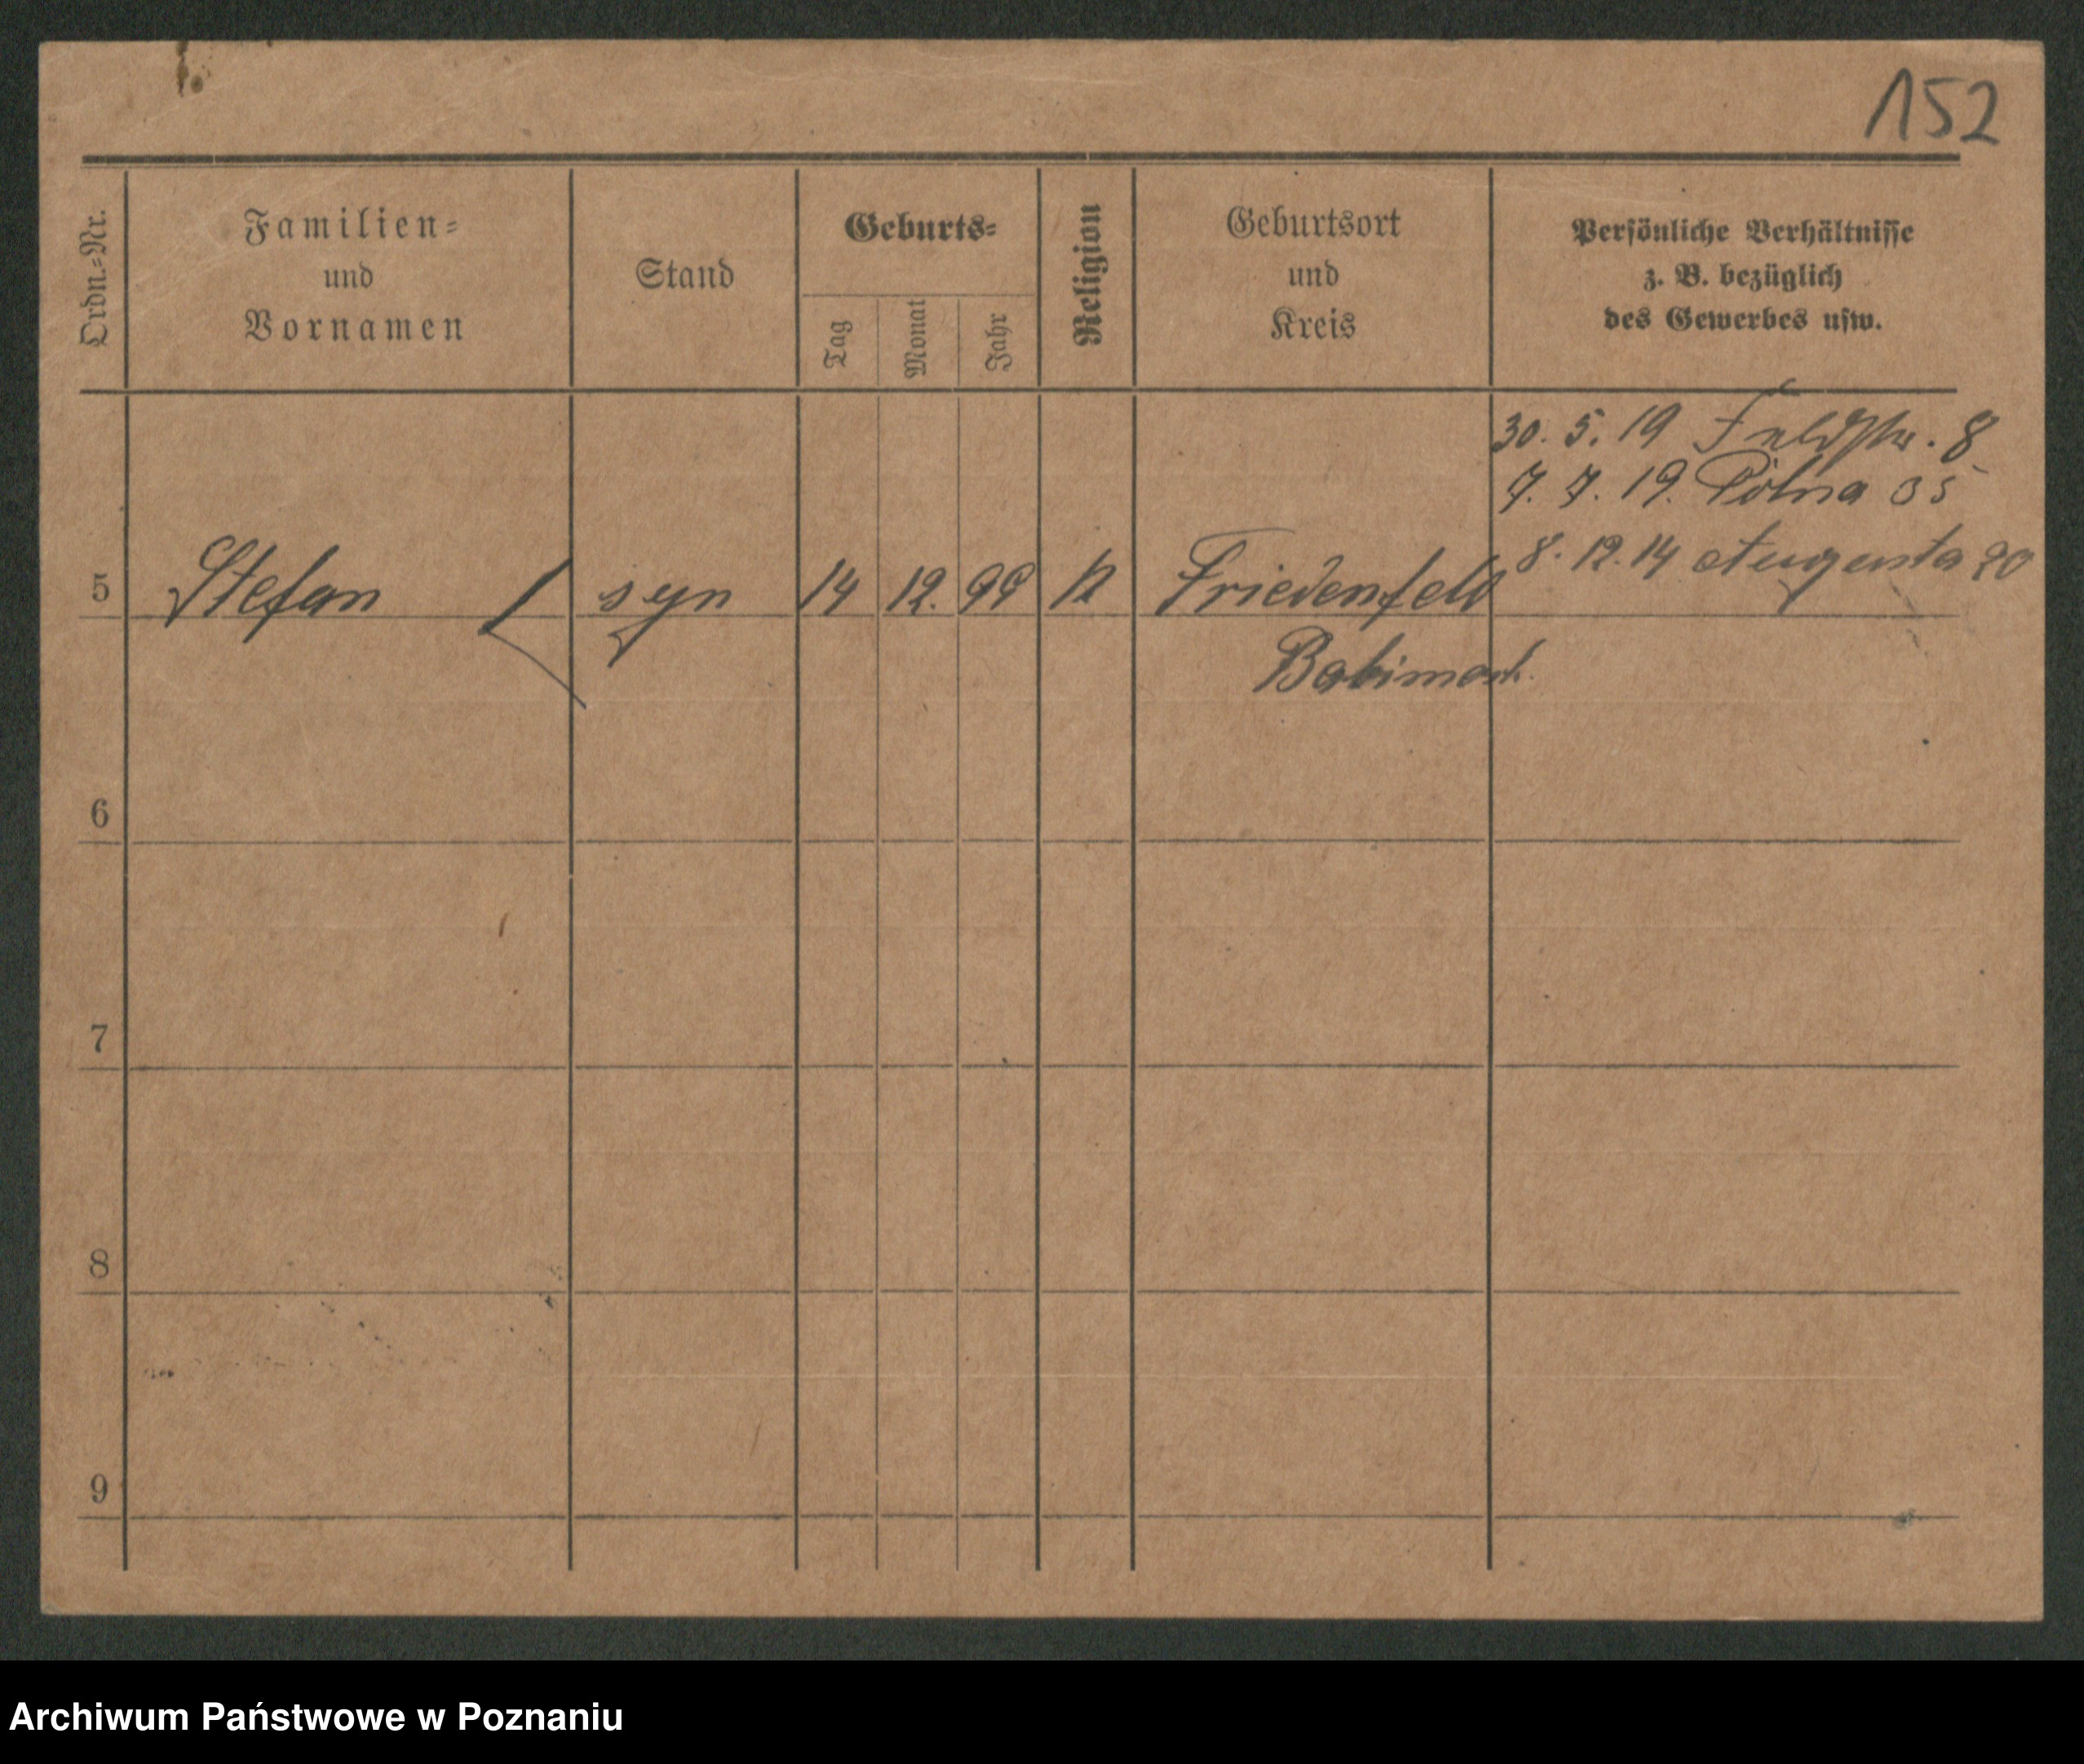 152
Ordn.-Nr.
Familien-
und
Vornamen
Stand
Geburts-
Tag
Monat
Jahr
Religion
Geburtsort
und
Kreis
Persönliche Verhältnisse
z. B. bezüglich
des Gewerbes usw.
30. 5. 19 Feldstr. 8
7. 7. 19. Polna 35
8. 12. 14 Augusta 20
5 Stefan syn 14 12. 99 k Friedenfeld
Babimost.
6
7
8
9
Archiwum Państwowe w Poznaniu